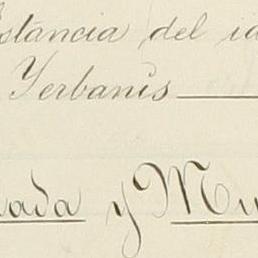 Estancia del id
Yerbanis
lada y Mu